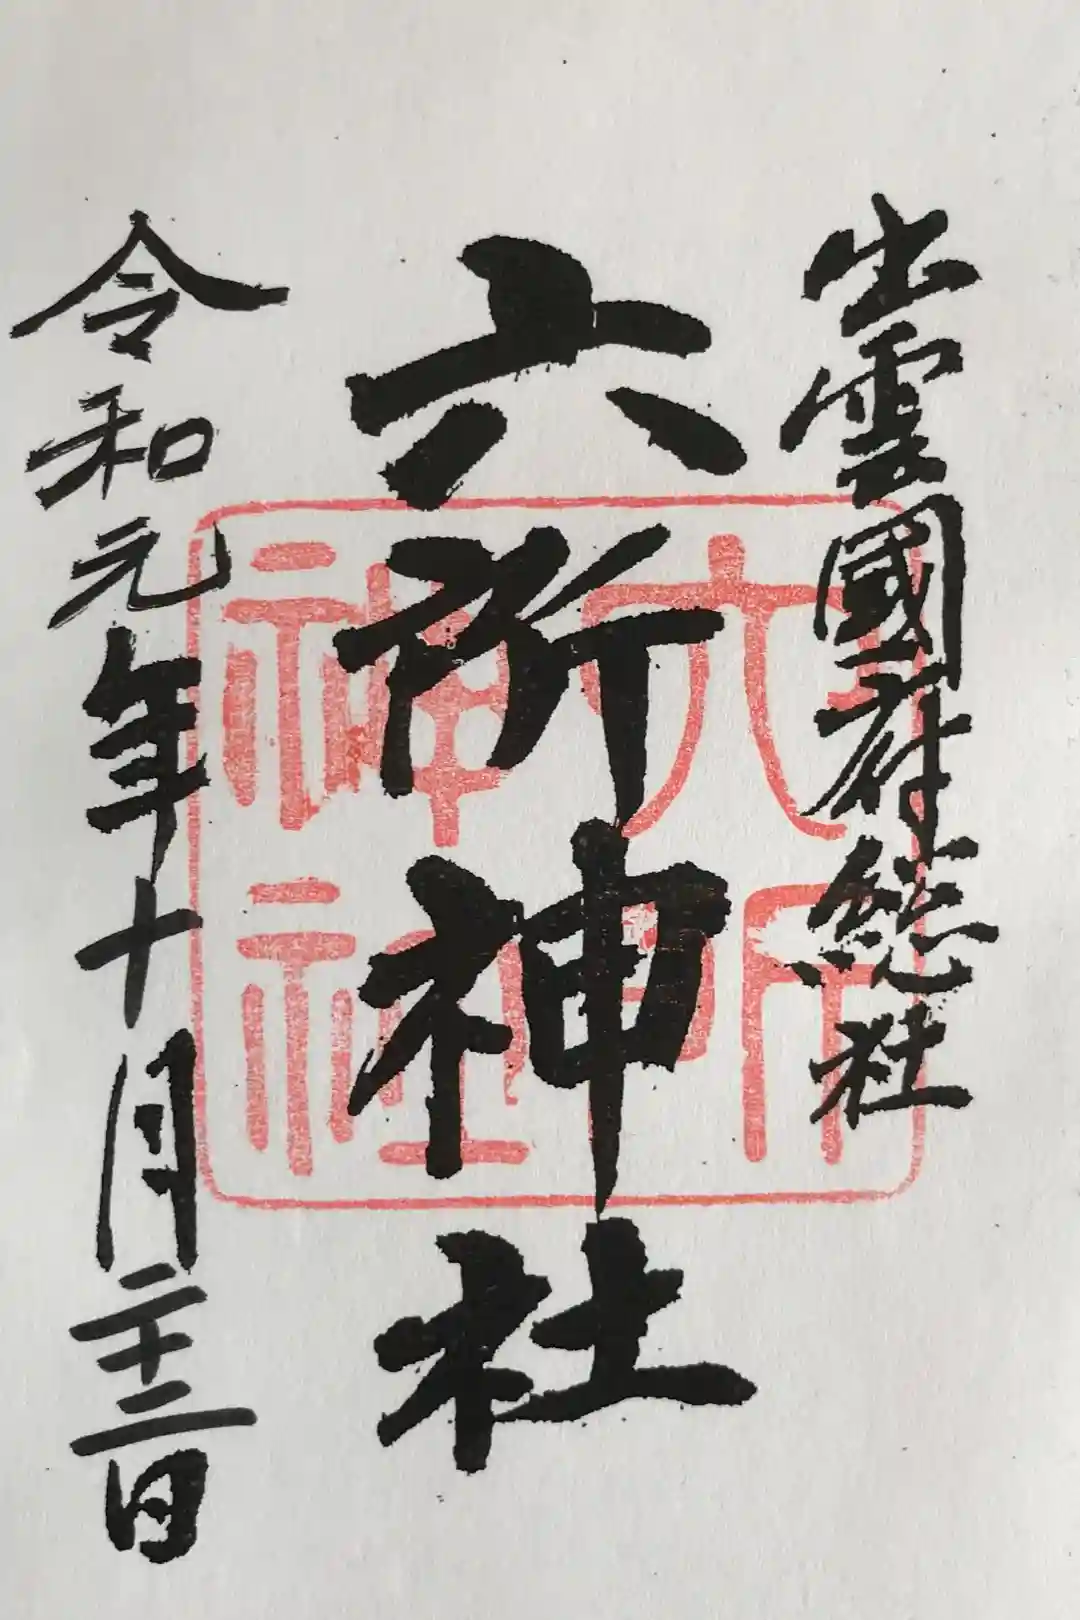 出雲國府総社
六所神社
六所神社
令和元年十月二十二日